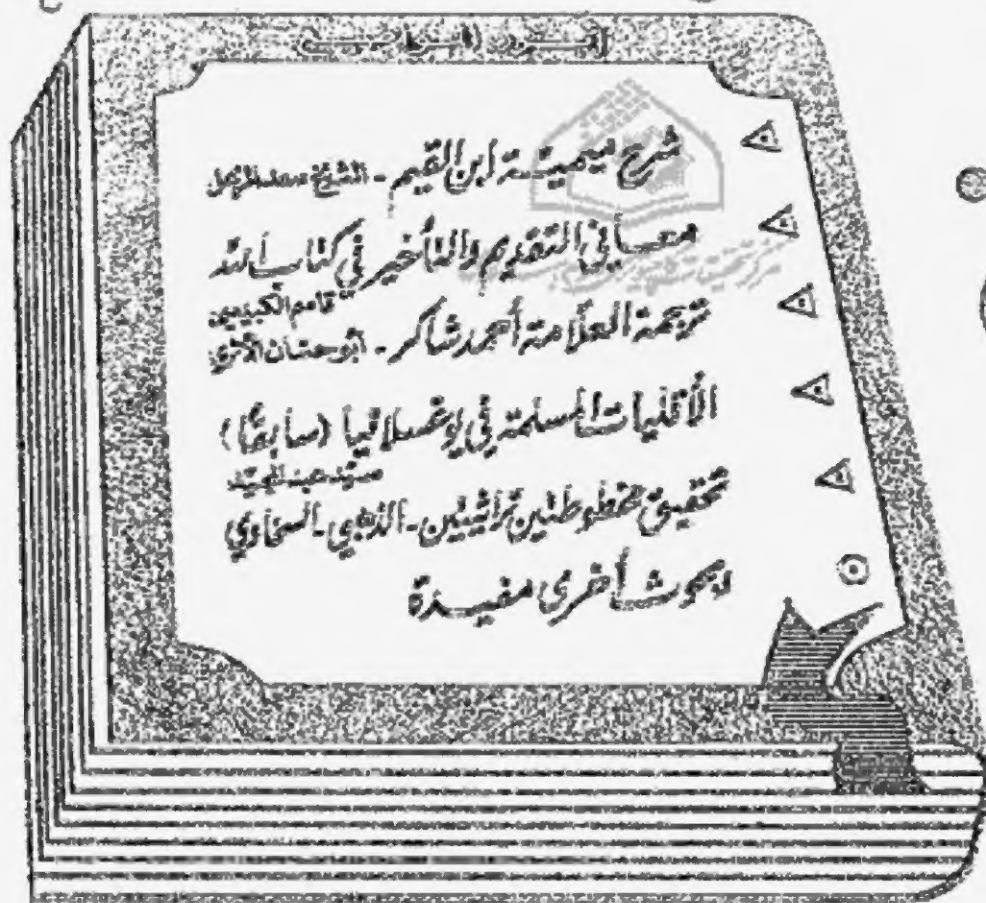 شرح ميمية ابن القيم - الشيخ سعد المزعل
معاني التقديم والتأخير في كتاب الله
قاسم الكبيسي
ترجمة العلامة أحمد شاكر - أبو حسان الأثري
الأقليات المسلمة في يوغسلافيا (سابقًا)
سيد عبد المجيد
تحقيق مخطوطتين تراثيتين - الذهبي - السخاوي
وبحوث أخرى مفيدة